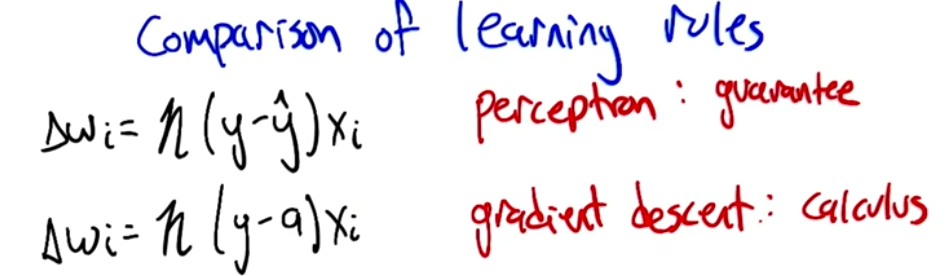 Comparison of learning rules
Δwi = η (y-ŷ) xi perceptron : guarantee
Δwi = η (y-a) xi gradient descent : calculus